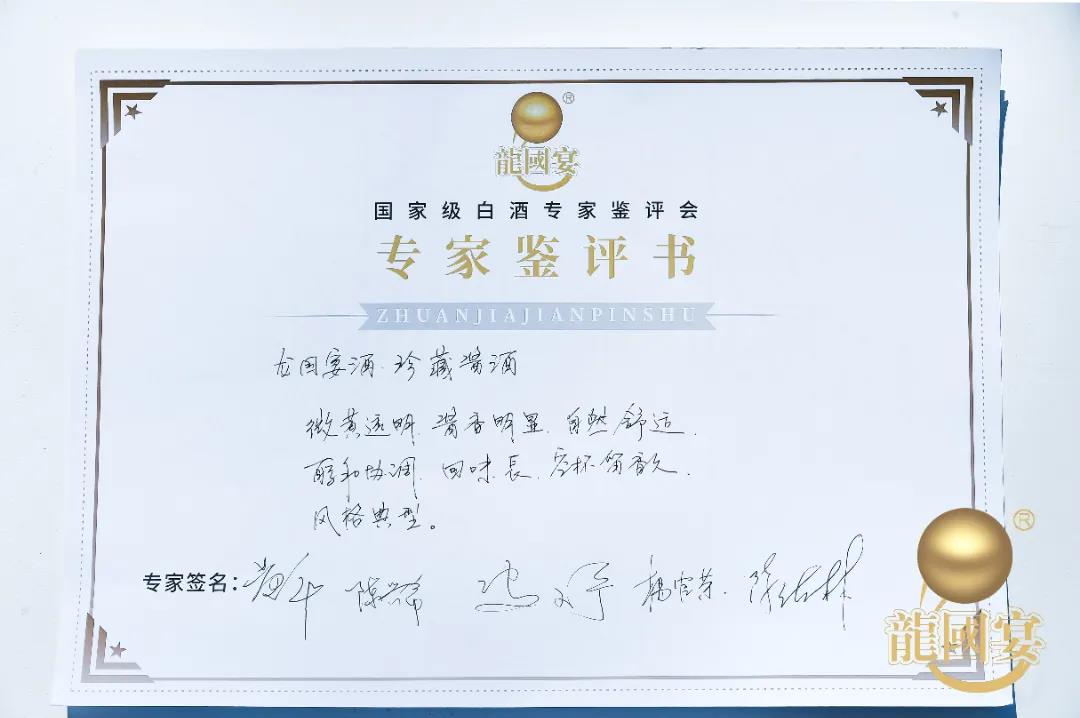 龍國宴
®
国家级白酒专家鉴评会
专家鉴评书
ZHUANJIAJIANPINSHU
龙国宴酒·珍藏酱酒
微黄透明、酱香明显、自然舒适、
醇和协调、回味長、空杯留香久、
风格典型。
专家签名:
®
龍國宴